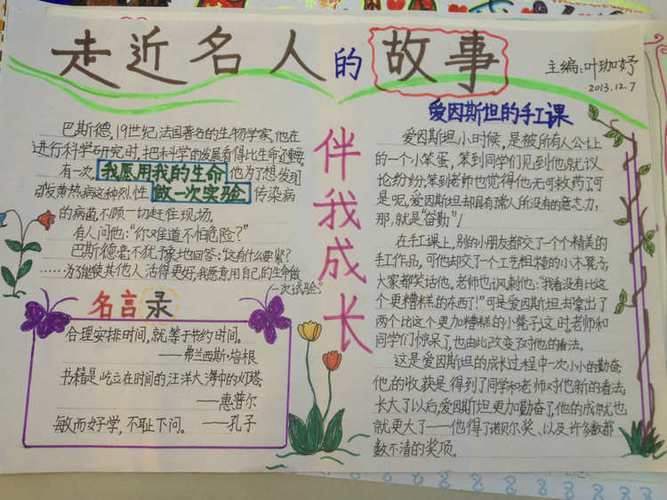 走近名人的故事
主编:叶珈妤
2013.12.7
巴斯德,19世纪法国著名的生物学家,他在
进行科学研究时,把科学的发展看得比生命还重要
有一次,我愿用我的生命他为了想发现
引发黄热病这种烈性做一次实验传染病
的病菌,不顾一切赶往现场。
有人问他:“你难道不怕危险?”
巴斯德毫不犹豫地回答:“这有什么要紧?
……为了能使其他人活得更好,我愿意用自己的生命做
一次试验。”
名言录
合理安排时间,就等于节约时间。
——弗兰西斯·培根
书籍是屹立在时间的汪洋大海中的灯塔
——惠普尔
敏而好学,不耻下问。——孔子
伴我成长
爱因斯坦的手工课
爱因斯坦小时候,是被所有人公认
的一个小笨蛋,笨到同学们见到他就议
论纷纷,笨到老师也觉得他无可救药了可
是呢,爱因斯坦却具有漢人所没有的意志力,
那,就是“奋勤”!
在手工课上,别的小朋友都交了一个个精美的
手工作品,可他却交了一个工艺粗糙的小木凳子,
大家都笑话他,老师也讽刺他:“我看没有比这
个更糟糕的东西了!”可是爱因斯坦却拿出了
两个比这个更加糟糕的小凳子,这时,老师和
同学们惊呆了,也由此改变了对他的看法。
这是爱因斯坦的成长过程中一次小小的勤奋
他的收获是得到了同学和老师对他新的看法,
长大了以后,爱因斯坦更加勤奋了,他的成就也
就更大了——他得了诺贝尔奖、以及许多数都
数不清的奖项。